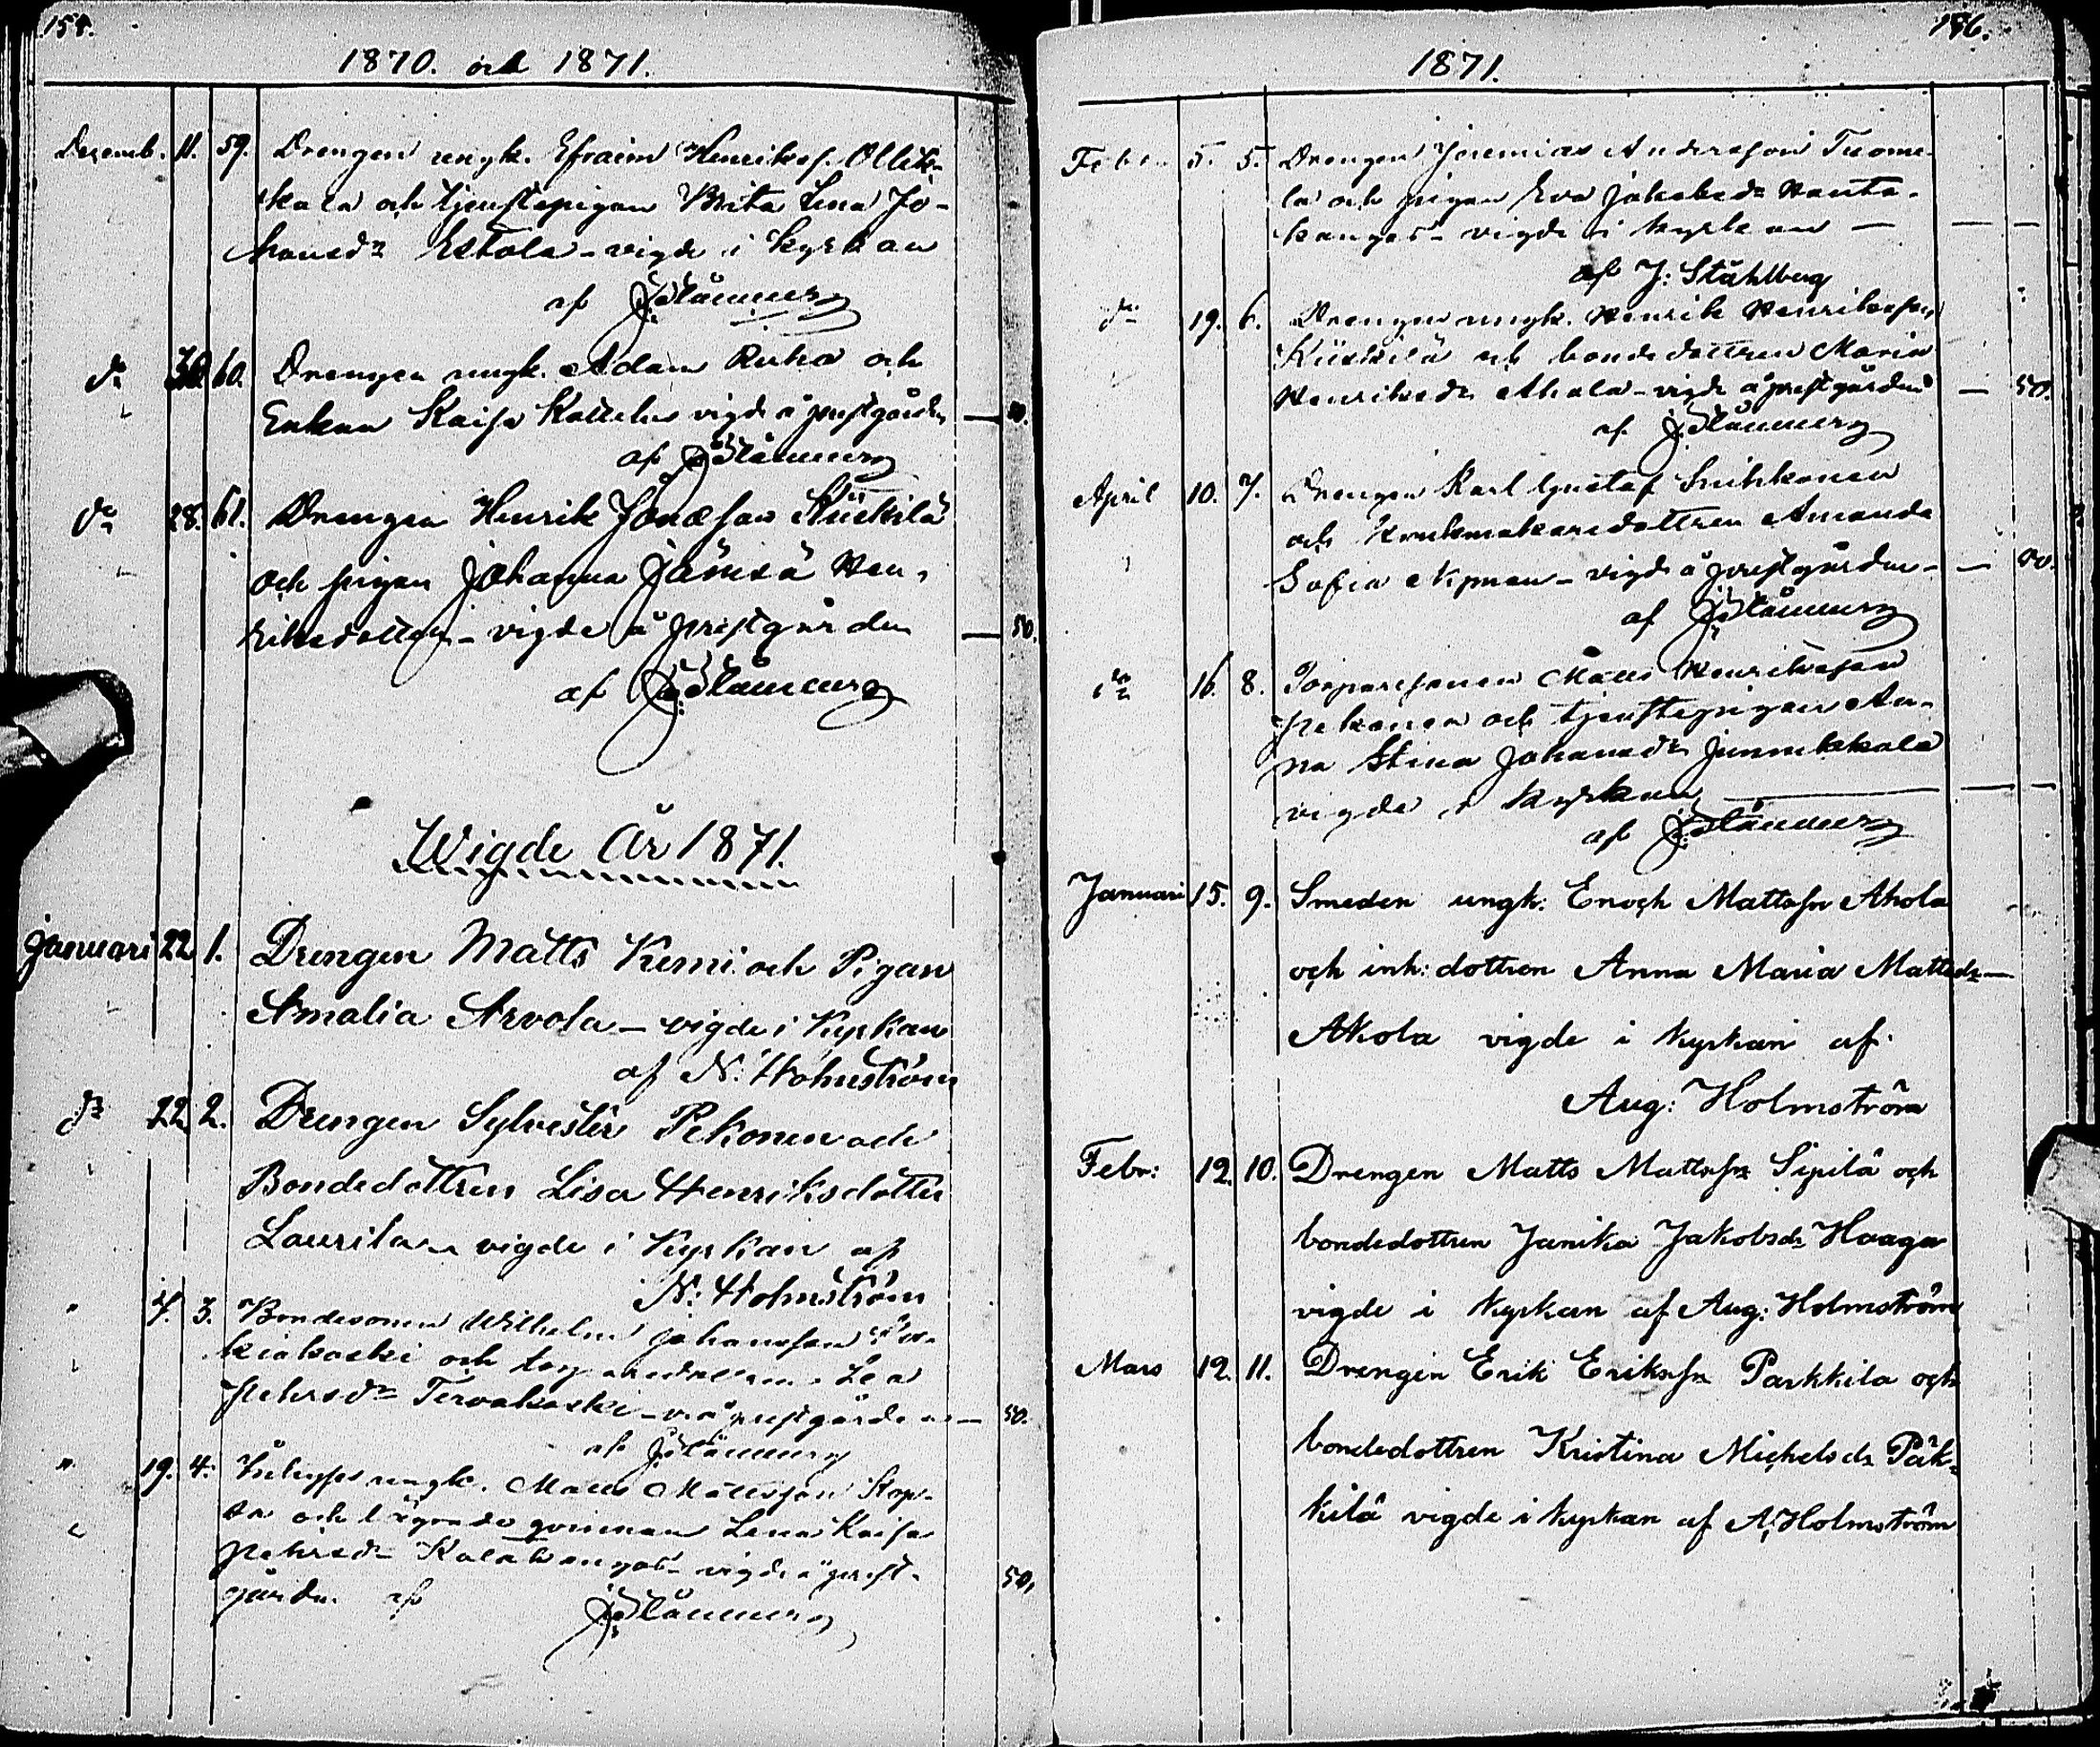 154.
1870. och 1871.
Decemb. 11. 59. Drengen ungk. Efraim Henrikss.
och tjenstepigan Brita Lena Jo-
hansdr Estola - vigde i kyrkan
af
dn 60. Drengen ungk. Adam Ruha och
Enkan Kaisa vigde å prestgården — 50.
af
dn 28. 61. Drengen Henrik Kuskilä
och pigan Johanna Jämsä Hen-
riksdotter - vigde å prestgården — 50.
af
Wigde År 1871.
Januari 22 1. Drengen Matts Kemi och Pigan
Amalia Arvola - vigde i Kyrkan
af N. Holmström
dn 22. 2. Drengen Sylvester Pekonen och
Bondedottren Lisa Henriksdotter
Laurila - vigde i Kyrkan af
N. Holmström
" 4. 3. Bondesonen Wilhelm Johansson
och Lea
Pehrsdr Tervakoski - prestgården — 50.
af
" 19. 4. ungk. Matts Mattsson
och qvinnan Lena Kaisa
Pehrsdr Kalakangas - vigde å prest-
gården af 50.
186.
1871.
Febr. 5. 5. Drengen Jeremias Andersson Tuome-
la och pigan Eva Jakobsdr Hanta-
kangas - vigde i kyrkan —
af J: Ståhlberg
dn 19. 6. Drengen ungk. Henrik Henriksson
Kiiskilä och bondedottren Maria
Henriksdr Ahola - vigde å prestgården — 50.
af
April 10. 7. Drengen Karl Gustaf
och Krukmakaredottren Amanda
Sofia Nyman - vigde å prestgården —
af
dn 16. 8. Torparesonen Matts Henriksson
Pekonen och tjenstepigan An-
na Stina Johansdr Junnikkala
vigde i kyrkan —
af
Januari 15. 9. Smeden ungk: Enoch Mattssn Ahola
och inh: dottren Anna Maria Mattsdr —
Ahola vigde i kyrkan af
Aug: Holmström
Febr: 12. 10. Drengen Matts Mattssn Sipilä och
bondedottren Janika Jakobsdr Haaga
vigde i kyrkan af Aug: Holmström
Mars 12. 11. Drengen Erik Erikssn Parkkila och
bondedottren Kristina Michelsdr Päk-
kilä vigde i kyrkan af A. Holmström